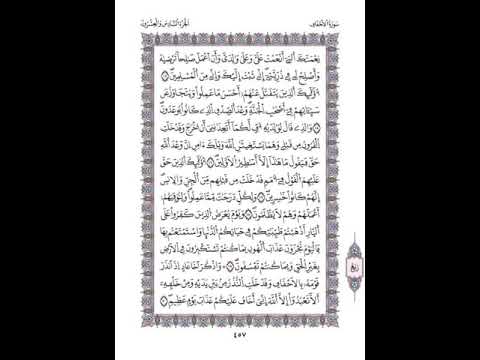 سورة الاحقاف الجزء السادس والعشرون
نعمتك التي أنعمت علي وعلى ولدي وأن أعمل صلحا ترضيه
وأصلح لي في ذريتي إني تبت إليك وإني من المسلمين
أولئك الذين يتقبل عنهم أحسن ما عملوا ويتجاوز عن
سيئاتهم في أصحب الجنة وعد الصدق الذي كانوا يوعدون
والذي قال لولديه أف لكما أتعدانني أن أخرج وقد خلت
القرون من قبلي وهما يستغيثن الله ويلك ءامن إن وعد الله
حق فيقول ما هذا إلا أسطير الأولين أولئك الذين حق
عليهم القول في أمم قد خلت من قبلهم من الجن والإنس
إنهم كانوا خسرين ولكل درجت مما عملوا ولنوفيهم
أعملهم وهم لا يظلمون ويوم يعرض الذين كفروا على
النار أذهبتم طيبتكم في حياتكم الدنيا واستمتعتم بها
فاليوم تجزون عذاب الهون بما كنتم تستكبرون في الأرض
بغير الحق وبما كنتم تفسقون واذكر أخا عاد إذ أنذر
قومه بالأحقاف وقد خلت النذر من بين يديه ومن خلفه
ألا تعبدوا إلا الله إني أخاف عليكم عذاب يوم عظيم
ربع
٤٥٧